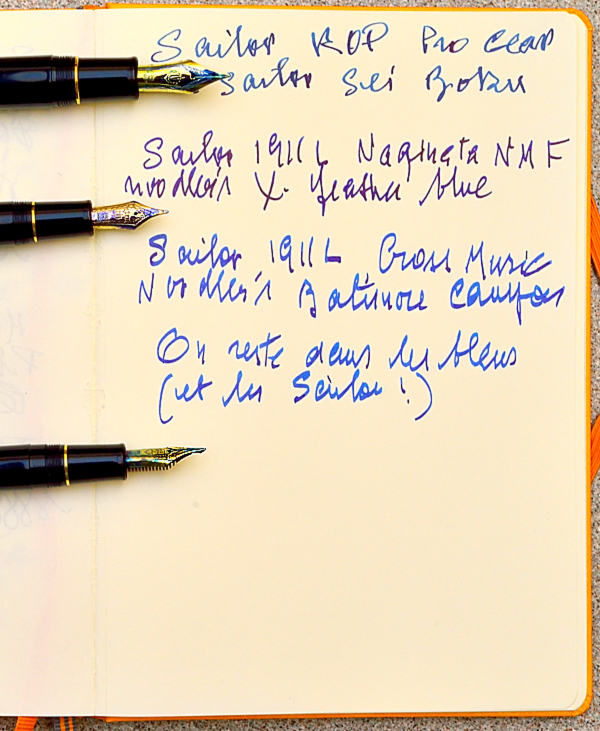 Sailor KOP Pro Gear
Sailor Sei Boku
Sailor 1911 L Naginata NMF
Noodler's X-feather blue
Sailor 1911 L Cross Music
Noodler's Baltimore Canyon
On reste dans les bleus
(et les Sailor !)